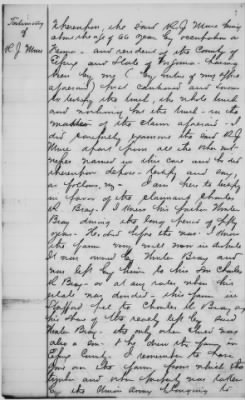 Testimony
of
R J Muse
Whereupon, the said R J Muse being
about the age of 60 years by occupation a
Farmer - and resident of the County of
Essex and State of Virginia - having
been by me (by virtue of my office
aforesaid) first cautioned and sworn
to testify the truth, the whole truth
and nothing but the truth - in the
matter of the claim aforesaid - I
did carefully examine the said R J
Muse apart from all the other wit-
nesses named in this case and he did
thereupon depose - testify and say,
as follows, viz - I am here to testify
in favor of the claimant Charles
R. Bray. I knew his father
Bray during the long period of fifty
years. He died before the war. I knew
the farm very well now in debate
It was owned by Bray and
was left by him to his son Charles
R Bray - or at any rate when his
estate was divided - this farm in
fell to Charles R Bray as
his share of the estate left by said
Bray - the only other
also a son - & he drew the farm in
Essex County. I remember to have
been on the farm from which the
and other property was taken
by the Union Army